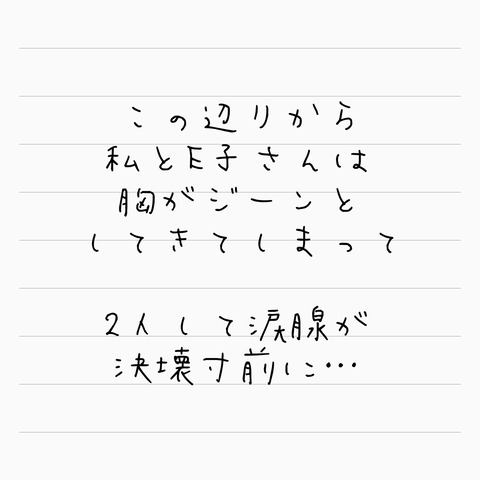 この辺りから
私とE子さんは
胸がジーンと
してきてしまって
2人して涙腺が
決壊寸前に…